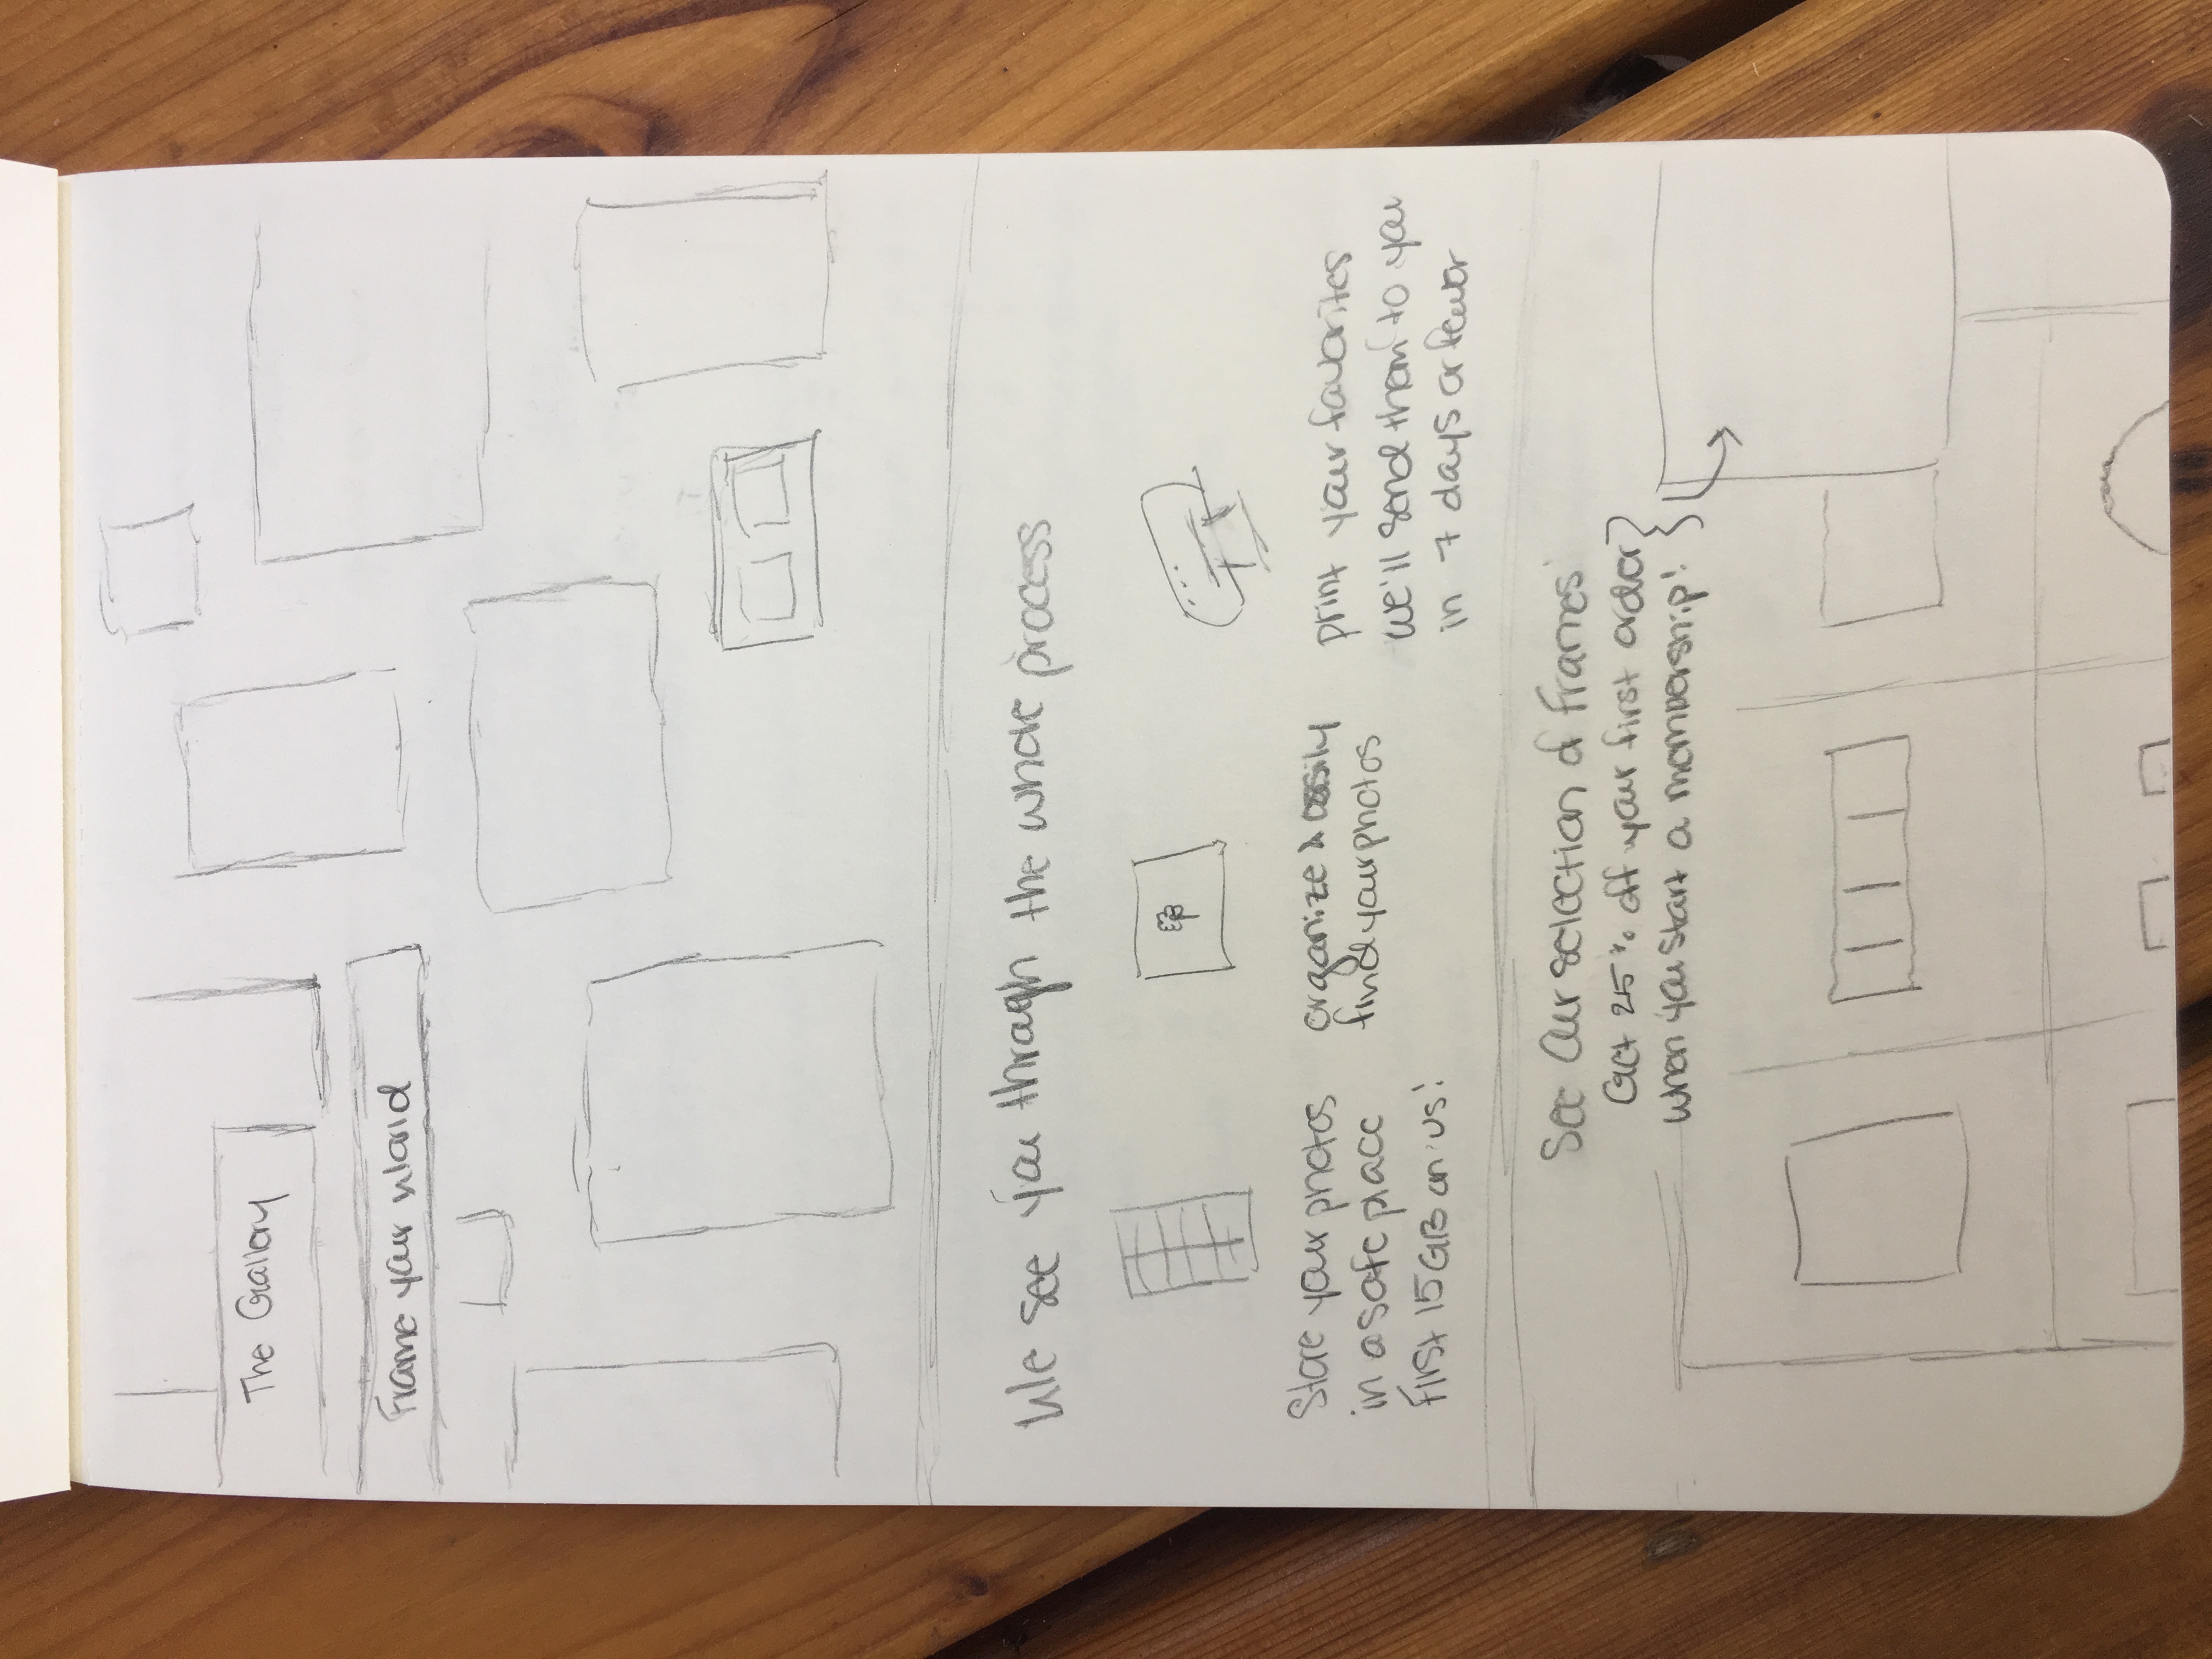 The Gallery
Frame your world
We see you through the whole process
Store your photos
in a safe place
First 15 GB on us!
organize & easily
find your photos
print your favorites
we'll send them to you
in 7 days or fewer
See our selection of frames
Get 25% off your first order
when you start a membership!